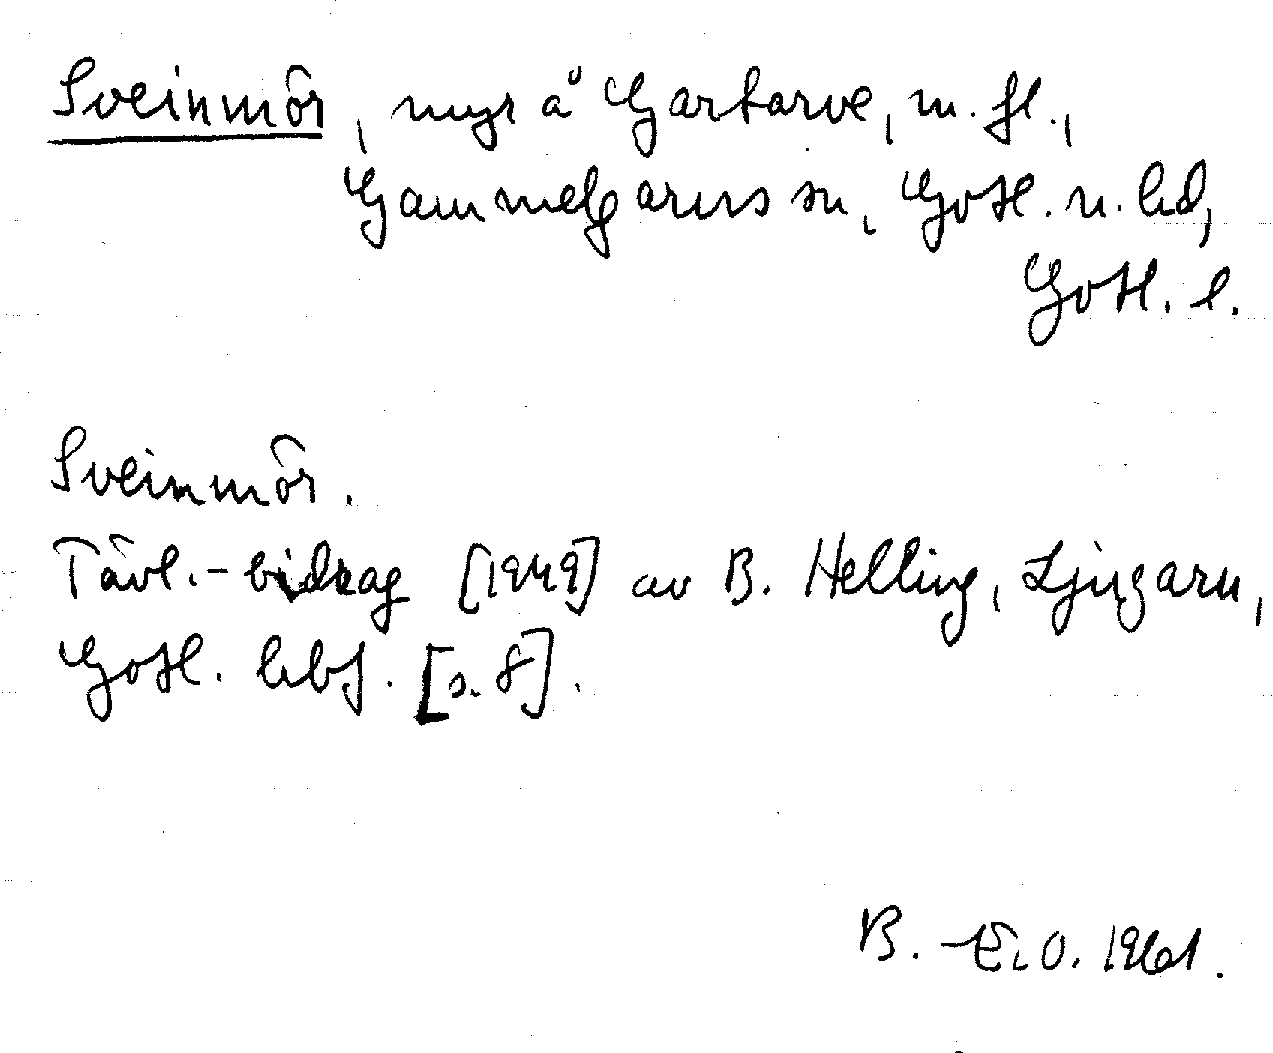 Sveinmôr, myr å Gartarve, m. fl.,
Gammelgarns sn, Gotl. n. hd,
Gotl. l.
Sveinmôr.
Tävl.-bidrag [1949] av B. Helling, Ljugarn,
Gotl. hbf. [s. 8].
B.-E. O. 1961.